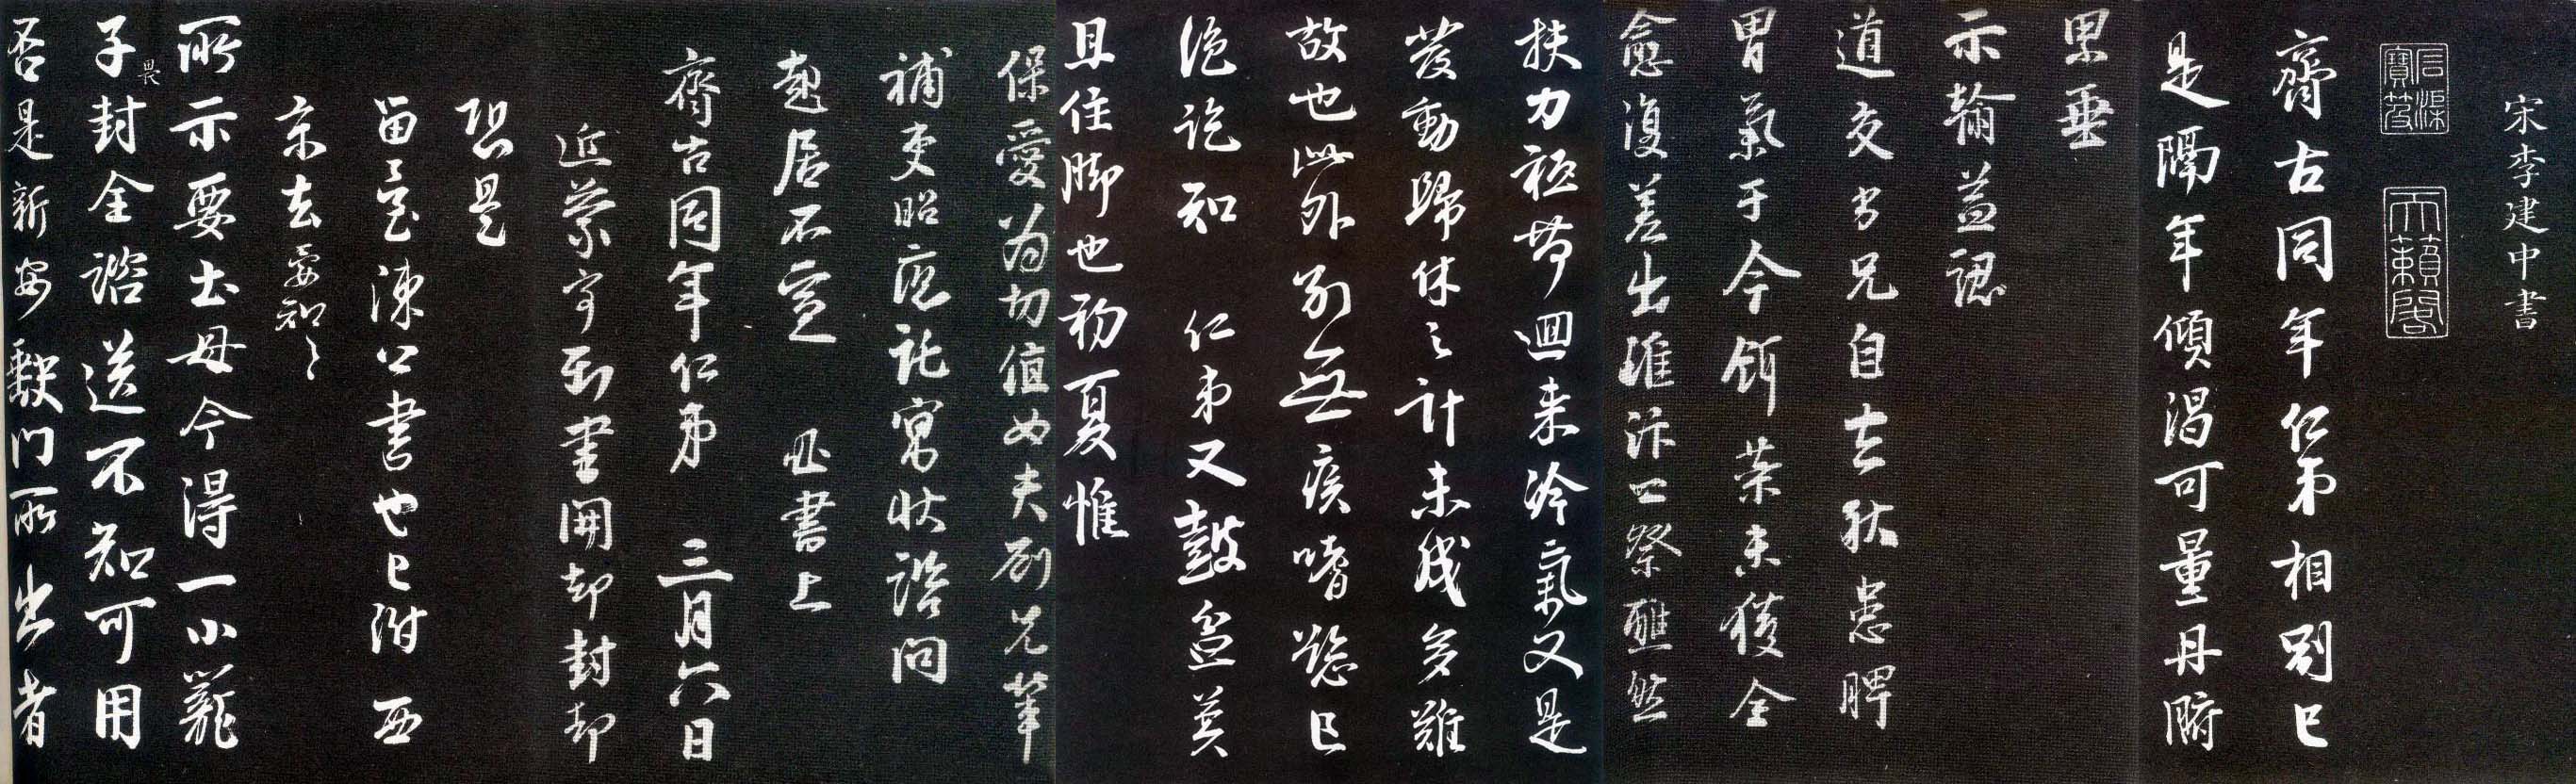 宋李建中書
天籟閣
齊古同年仁弟相別已
是隔年傾渴可量丹腑
累垂
示翰益認
道交劣兄自去秋患脾
胃氣于今餌藥未獲全
愈復差出雍汴口祭醮然
扶力祗勞迴來冷氣又是
發動歸休之計未成多難
故也此外別無痰嗜慾已
絕訖知 仁弟又鼓盆莫
且住腳也初夏惟
保愛為切值女夫劉兄筆
補吏昭應託寓狀諮問
起居不宣 忌書上
齊古同年仁弟 三月六日
近蒙寄到書開却封却
恐是
留臺陳公書也已附 西
京去要知之
所示要土母今得一小籠
子封全諮送不知可用
否是新安缺門所出者